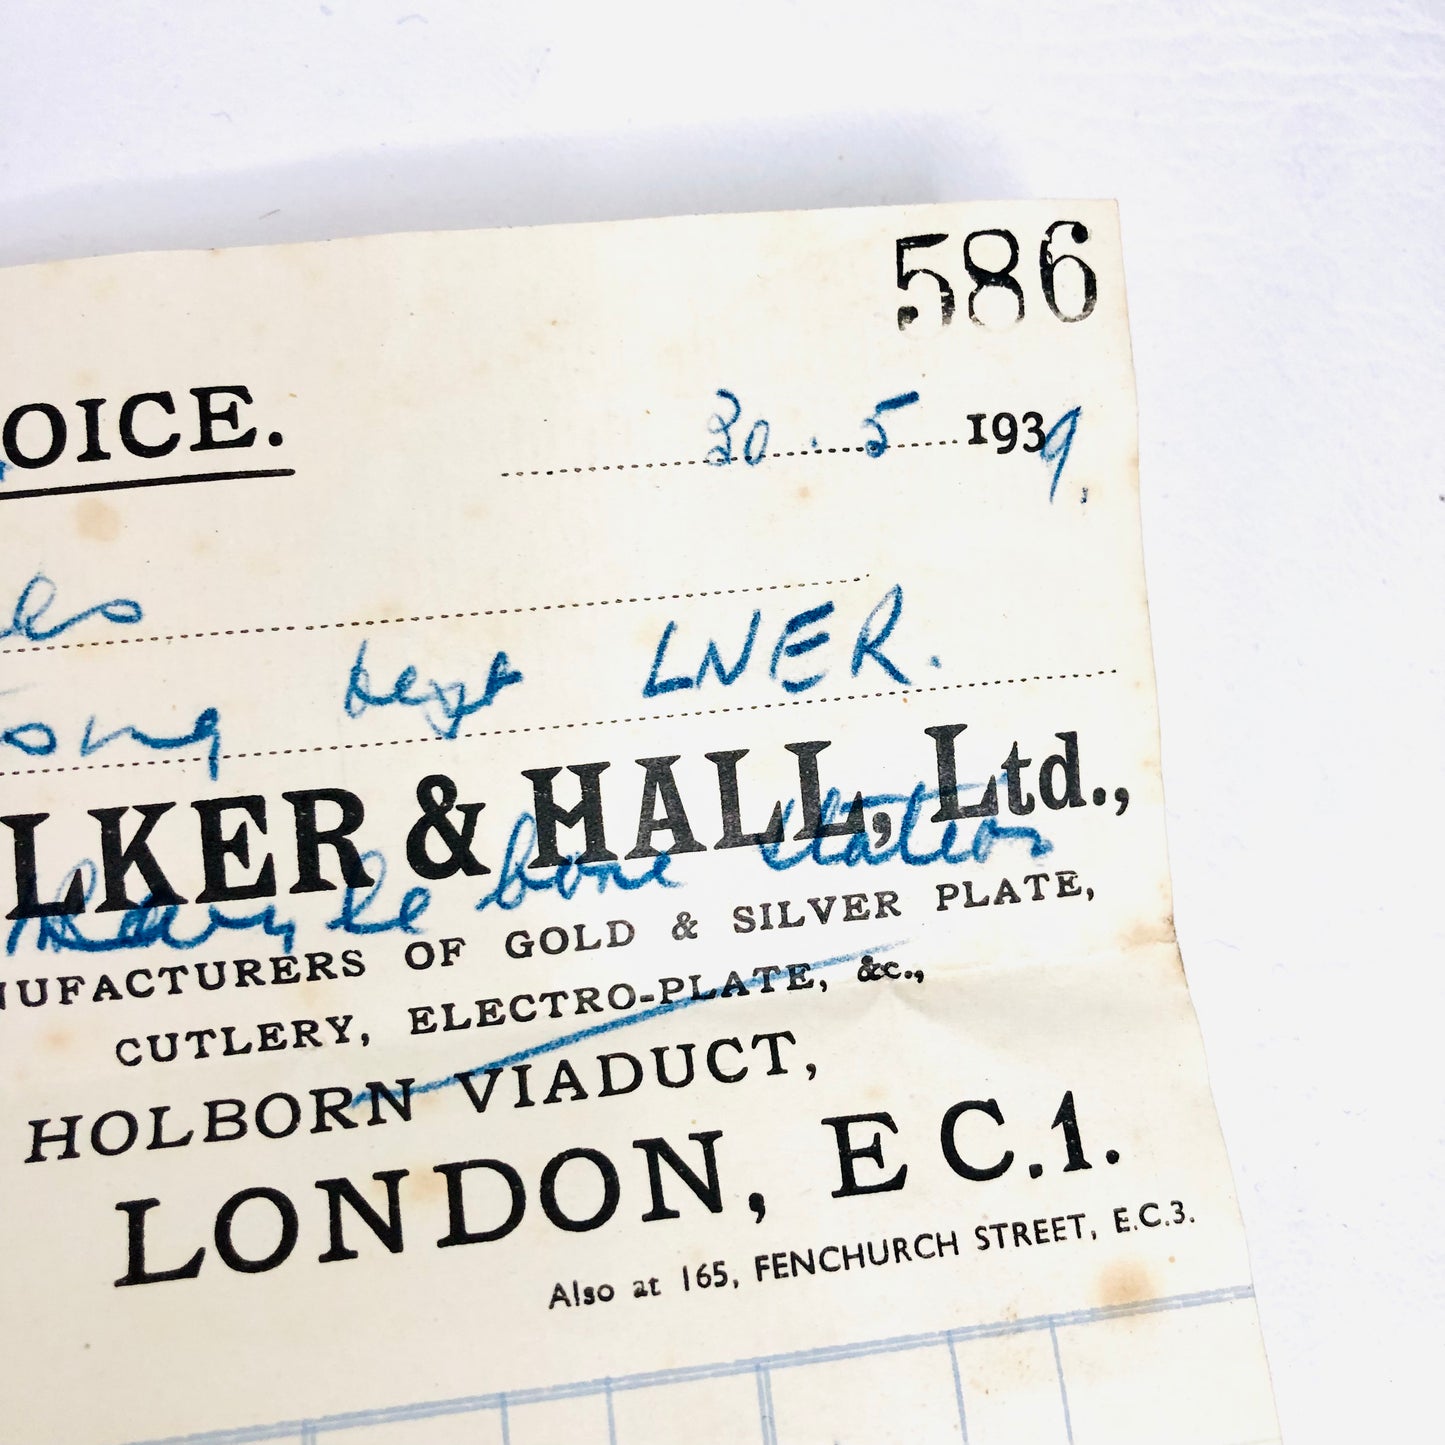 586
OICE.
30 . 5 1939.
les
ong dept LNER.
LKER & HALL, Ltd.,
Maryle bone Station
NUFACTURERS OF GOLD & SILVER PLATE,
CUTLERY, ELECTRO-PLATE, &c.,
HOLBORN VIADUCT,
LONDON, E C.1.
Also at 165, FENCHURCH STREET, E.C.3.